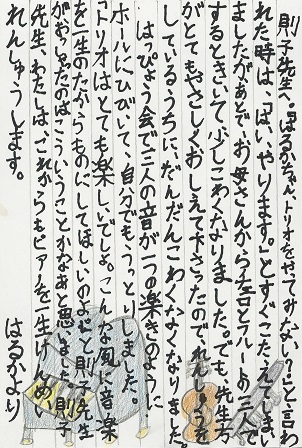 則子先生へ。「はるかちゃん、トリオをやってみない?」と言わ
れた時は、「はい、やります。」とすぐこたえてしまい
ましたが、あとで、お母さんから
とフルートの三人で
するときいて少しこわくなりました。でも、先生方
がとてもやさしくおしえて下さったので、れんしゅう
しているうちに、だんだんこわくなくなりました。
はっぴょう会で三人の音が一つの楽きのように
ホールにひびいて、自分でもうっとりしました。
「トリオはとても楽しいでしょ。こんな風に音楽
を一生のたからものにしてほしいのよ。」と則子先生
がおっしゃったのはこういうことかなあと思いました。則子
先生、わたしは、これからもピアノを一生けんめい
れんしゅうします。
はるかより